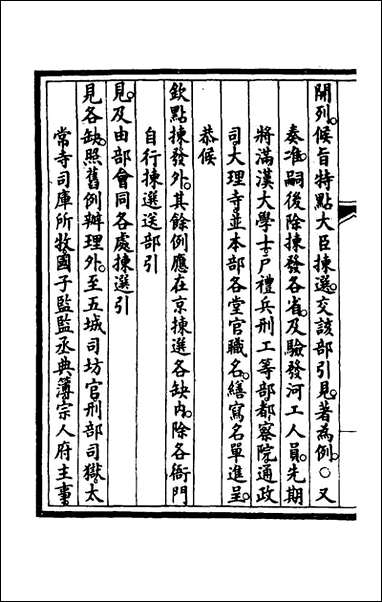 開列。候旨特點大臣揀選。交該部引見。著為例。○又
奏准。嗣後除揀發各省。及驗發河工人員。先期
將滿漢大學士。戶禮兵刑工等部。都察院通政
司。大理寺。並本部各堂官職名。繕寫名單進呈。
恭候
欽點揀發外。其餘例應在京揀選各缺內。除各衙門
自行揀選送部引
見。及由部會同各處揀選引
見各缺。照舊例辦理外。至五城司坊官刑部司獄。太
常寺司庫所牧國子監監丞典簿宗人府主事